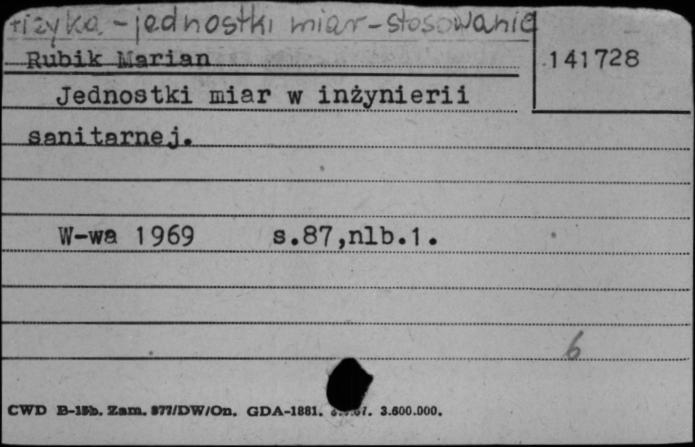 fizyka - jednostki miar - stosowanie
Rubik Marian
141728
Jednostki miar w inżynierii
sanitarnej.
W-wa 1969 s.87,nlb.1.
6
CWD B-15b. Zam. 877/DW/On. GDA-1881. 3.600.000.